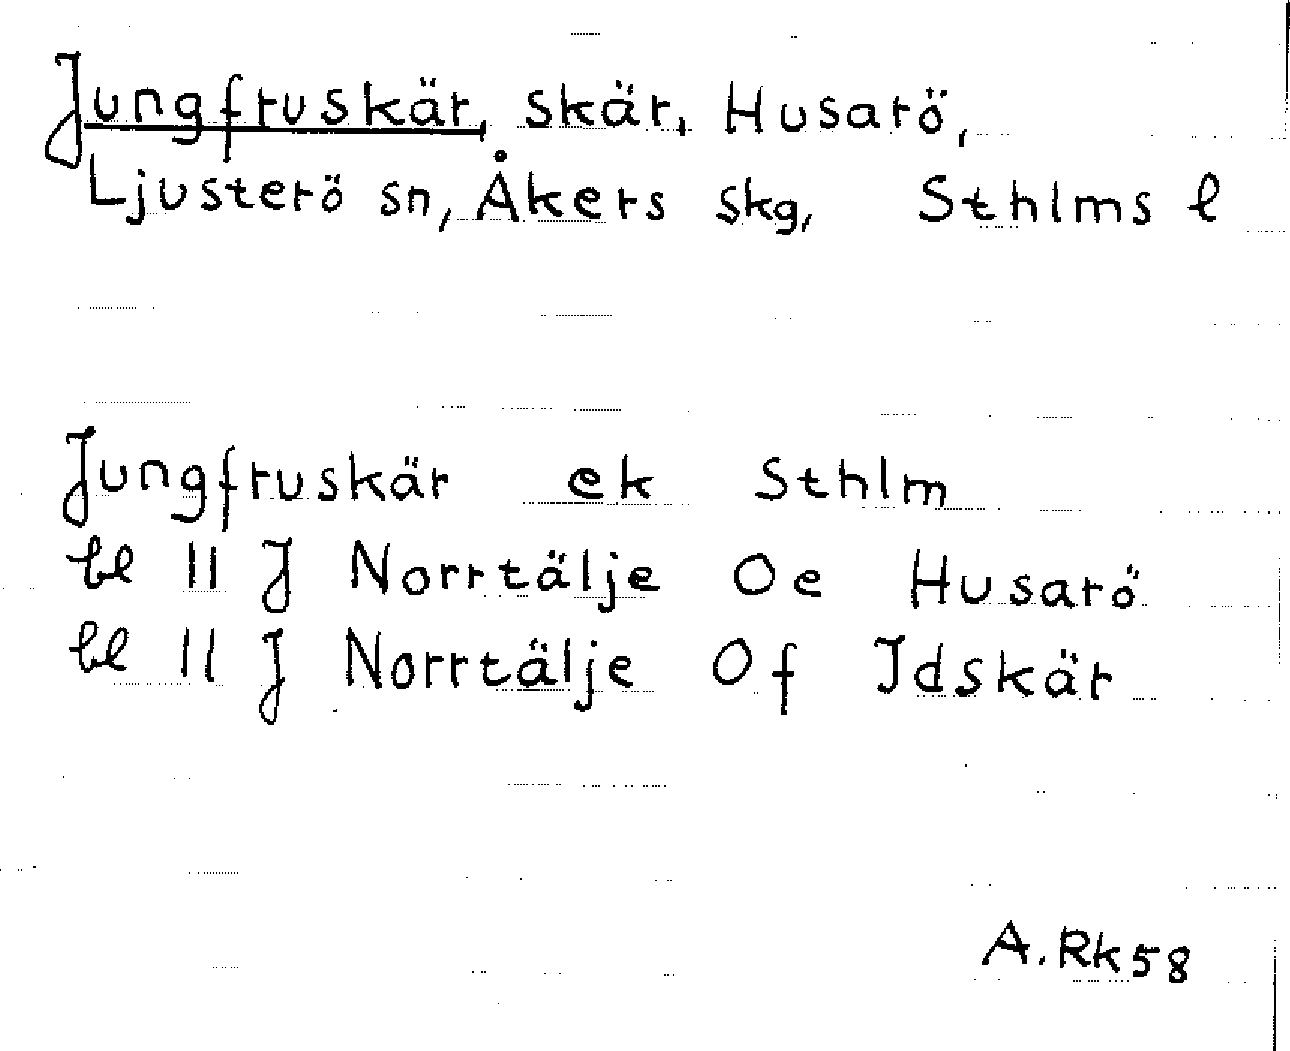 Jungfruskär, skär, Husarö,
Ljusterö sn, Åkers skg, Sthlms l
Jungfruskär ek Sthlm
bl 11 J Norrtälje Oe Husarö
bl 11 J Norrtälje Of Idskär
A.Rk58